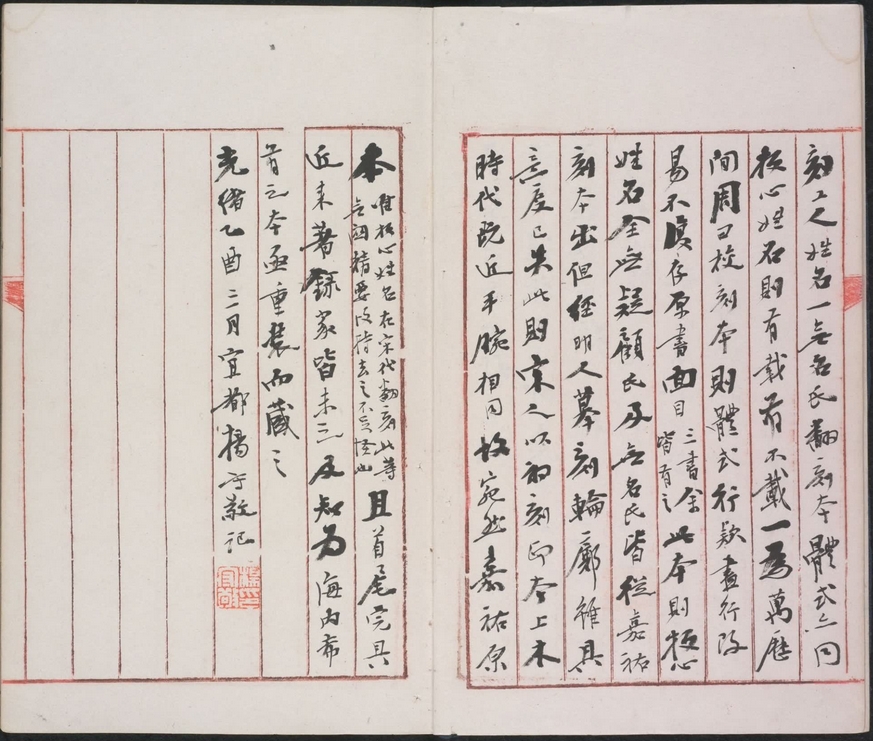 刻工人姓名一無名氏翻刻本體式亦同
板心姓名則有載有不載一爲萬歷
間周曰校刻本則體式行欵盡行改
易不復存原書面目三書余皆有之此本則板心
姓名全無疑顧氏及無名氏皆從嘉祐
刻本出但經明人摹刻輪廓雖具
意度已失此則宋人以初刻印本上木
時代既近手腕相同故宛然嘉祐原
本唯板心姓名在宋代翻刻此等無關精要改背去之不足怪也且首尾完具
近來著錄家皆未之及知爲海內希
有之本亟重裝而藏之
光緒乙酉三月宜都楊守敬記
楊印守敬